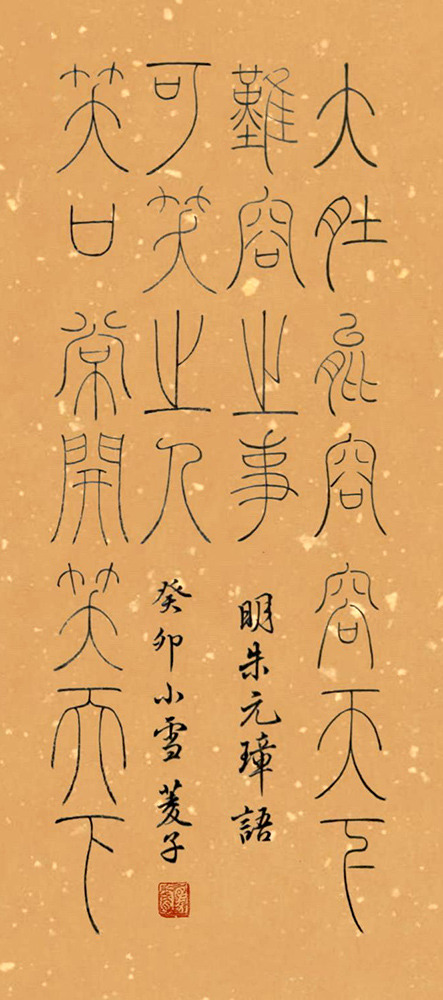 大肚能容容天下
難容之事
笑口常開笑天下
可笑之人
明朱元璋語
癸卯小雪 菱子